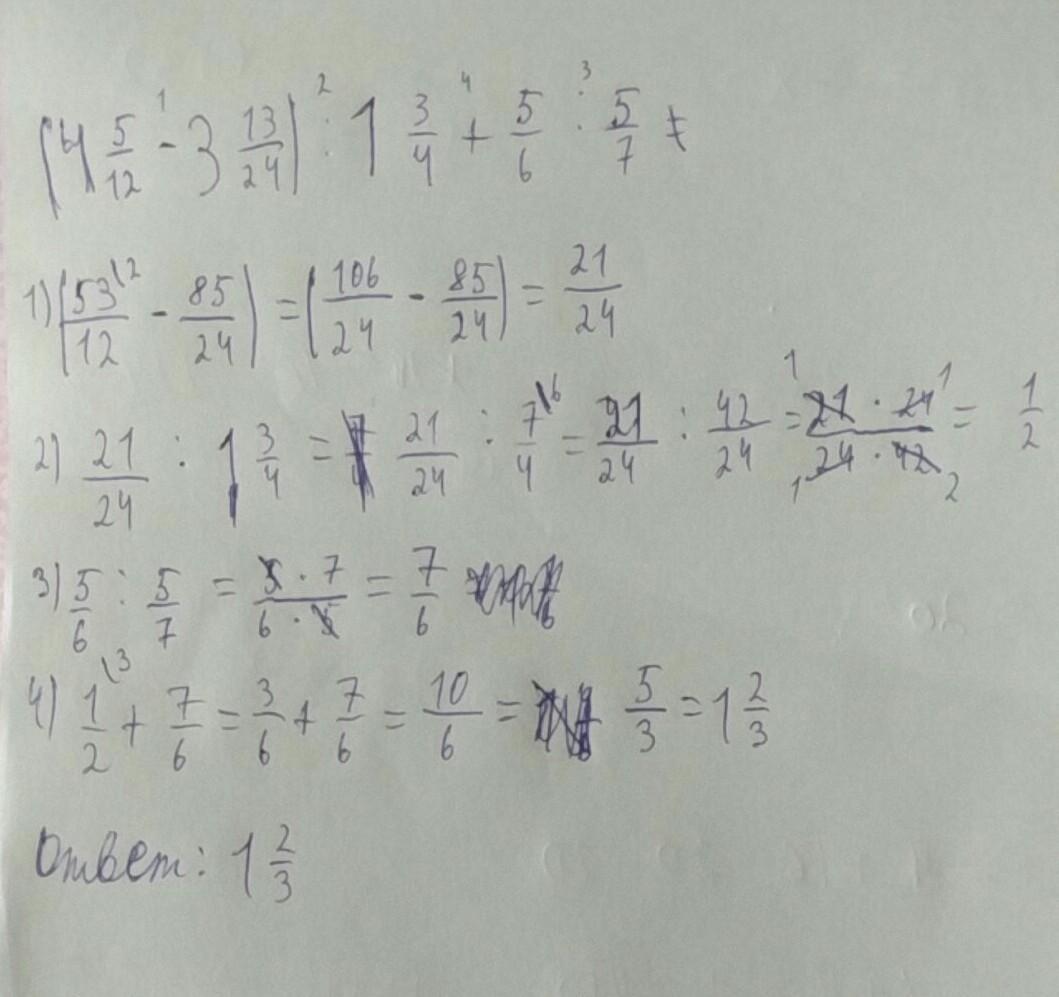 (4 5/12 - 3 13/24) : 1 3/4 + 5/6 : 5/7 =
1) (53/12 - 85/24) = (106/24 - 85/24) = 21/24
2) 21/24 : 1 3/4 = 21/24 : 7/4 = 21/24 : 42/24 = 21 · 24 / 24 · 42 = 1/2
3) 5/6 : 5/7 = 5 · 7 / 6 · 5 = 7/6
4) 1/2 + 7/6 = 3/6 + 7/6 = 10/6 = 5/3 = 1 2/3
Ответ: 1 2/3